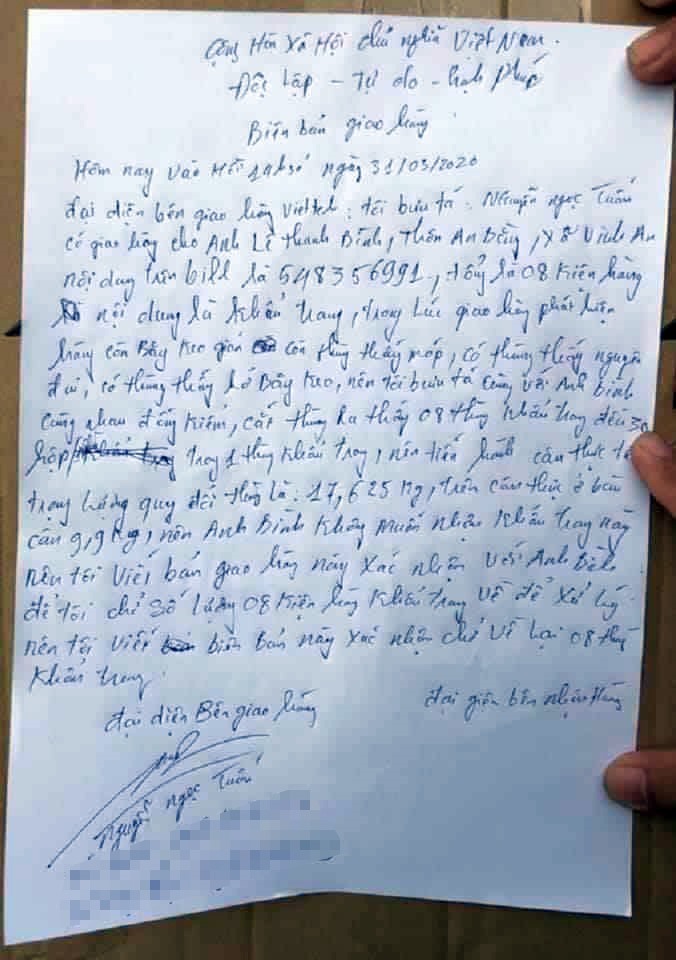 Cộng Hòa Xã Hội chủ nghĩa Việt Nam.
Độc lập - Tự do - Hạnh Phúc
Biên bản giao hàng.
Hôm nay vào Hồi ngày 31/03/2020
đại diện bên giao hàng Viettel: tôi bưu tá: Nguyễn ngọc Tuấn
có giao hàng cho Anh Lê Thanh Bình, Thôn An Bằng, Xã Vinh An
nội dung trên bill là 548356991, tổng là 08 Kiện hàng
nội dung là khẩu trang, trong lúc giao hàng phát hiện
hàng còn Băng keo còn thùng thấy móp, có thùng thấy nguyên
đai, có thùng thấy hở Băng keo, nên tôi bưu tá cùng với Anh Bình
cùng nhau đồng kiểm, cắt thùng ra thấy 08 thùng khẩu trang đều 30
hộp/ trong 1 thùng khẩu trang, nên tiến hành cân thực tế
trọng lượng quy đổi thùng là: 17,625 Kg, trên cân thực ở
cân 9,9 Kg, nên Anh Bình không muốn nhận khẩu trang này
nên tôi viết bản giao hàng này xác nhận với Anh Bình
để tôi chở số lượng 08 kiện hàng khẩu trang về để xử lý.
nên tôi viết biên bản này xác nhận chở về lại 08 thùng
khẩu trang.
đại diện Bên giao hàng
đại giện bên nhận hàng
Nguyễn ngọc Tuấn